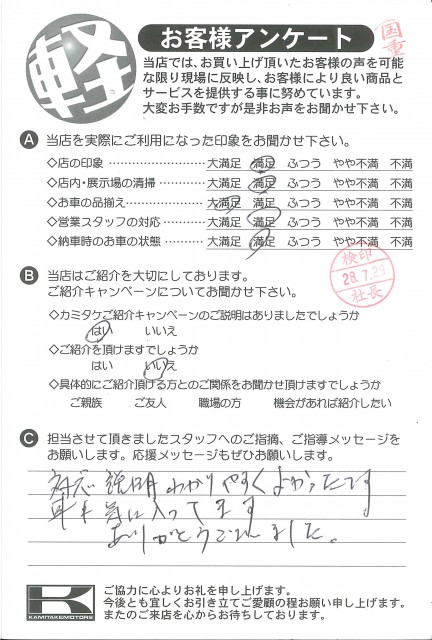 軽
お客様アンケート
国重
当店では、お買い上げ頂いたお客様の声を可能
な限り現場に反映し、お客様により良い商品と
サービスを提供する事に努めています。
大変お手数ですが是非お声をお聞かせ下さい。
A 当店を実際にご利用になった印象をお聞かせ下さい。
◇店の印象 大満足 満足 ふつう やや不満 不満
◇店内・展示場の清掃 大満足 満足 ふつう やや不満 不満
◇お車の品揃え 大満足 満足 ふつう やや不満 不満
◇営業スタッフの対応 大満足 満足 ふつう やや不満 不満
◇納車時のお車の状態 大満足 満足 ふつう やや不満 不満
検印
28.7.29
社長
B 当店はご紹介を大切にしております。
ご紹介キャンペーンについてお聞かせ下さい。
◇カミタケご紹介キャンペーンのご説明はありましたでしょうか
はい いいえ
◇ご紹介を頂けますでしょうか
はい いいえ
◇具体的にご紹介頂ける方とのご関係をお聞かせ頂けますでしょうか
ご親族 ご友人 職場の方 機会があれば紹介したい
C 担当させて頂きましたスタッフへのご指摘、ご指導メッセージを
お願いします。応援メッセージもぜひお願いします。
対応 説明 わかりやすくよかったです
車も気に入ってます
ありがとうございました。
K
KAMITAKEMOTORS
ご協力に心よりお礼を申し上げます。
今後とも宜しくお引き立てご愛顧の程お願い申し上げます。
またのご来店を心からお待ちしております。